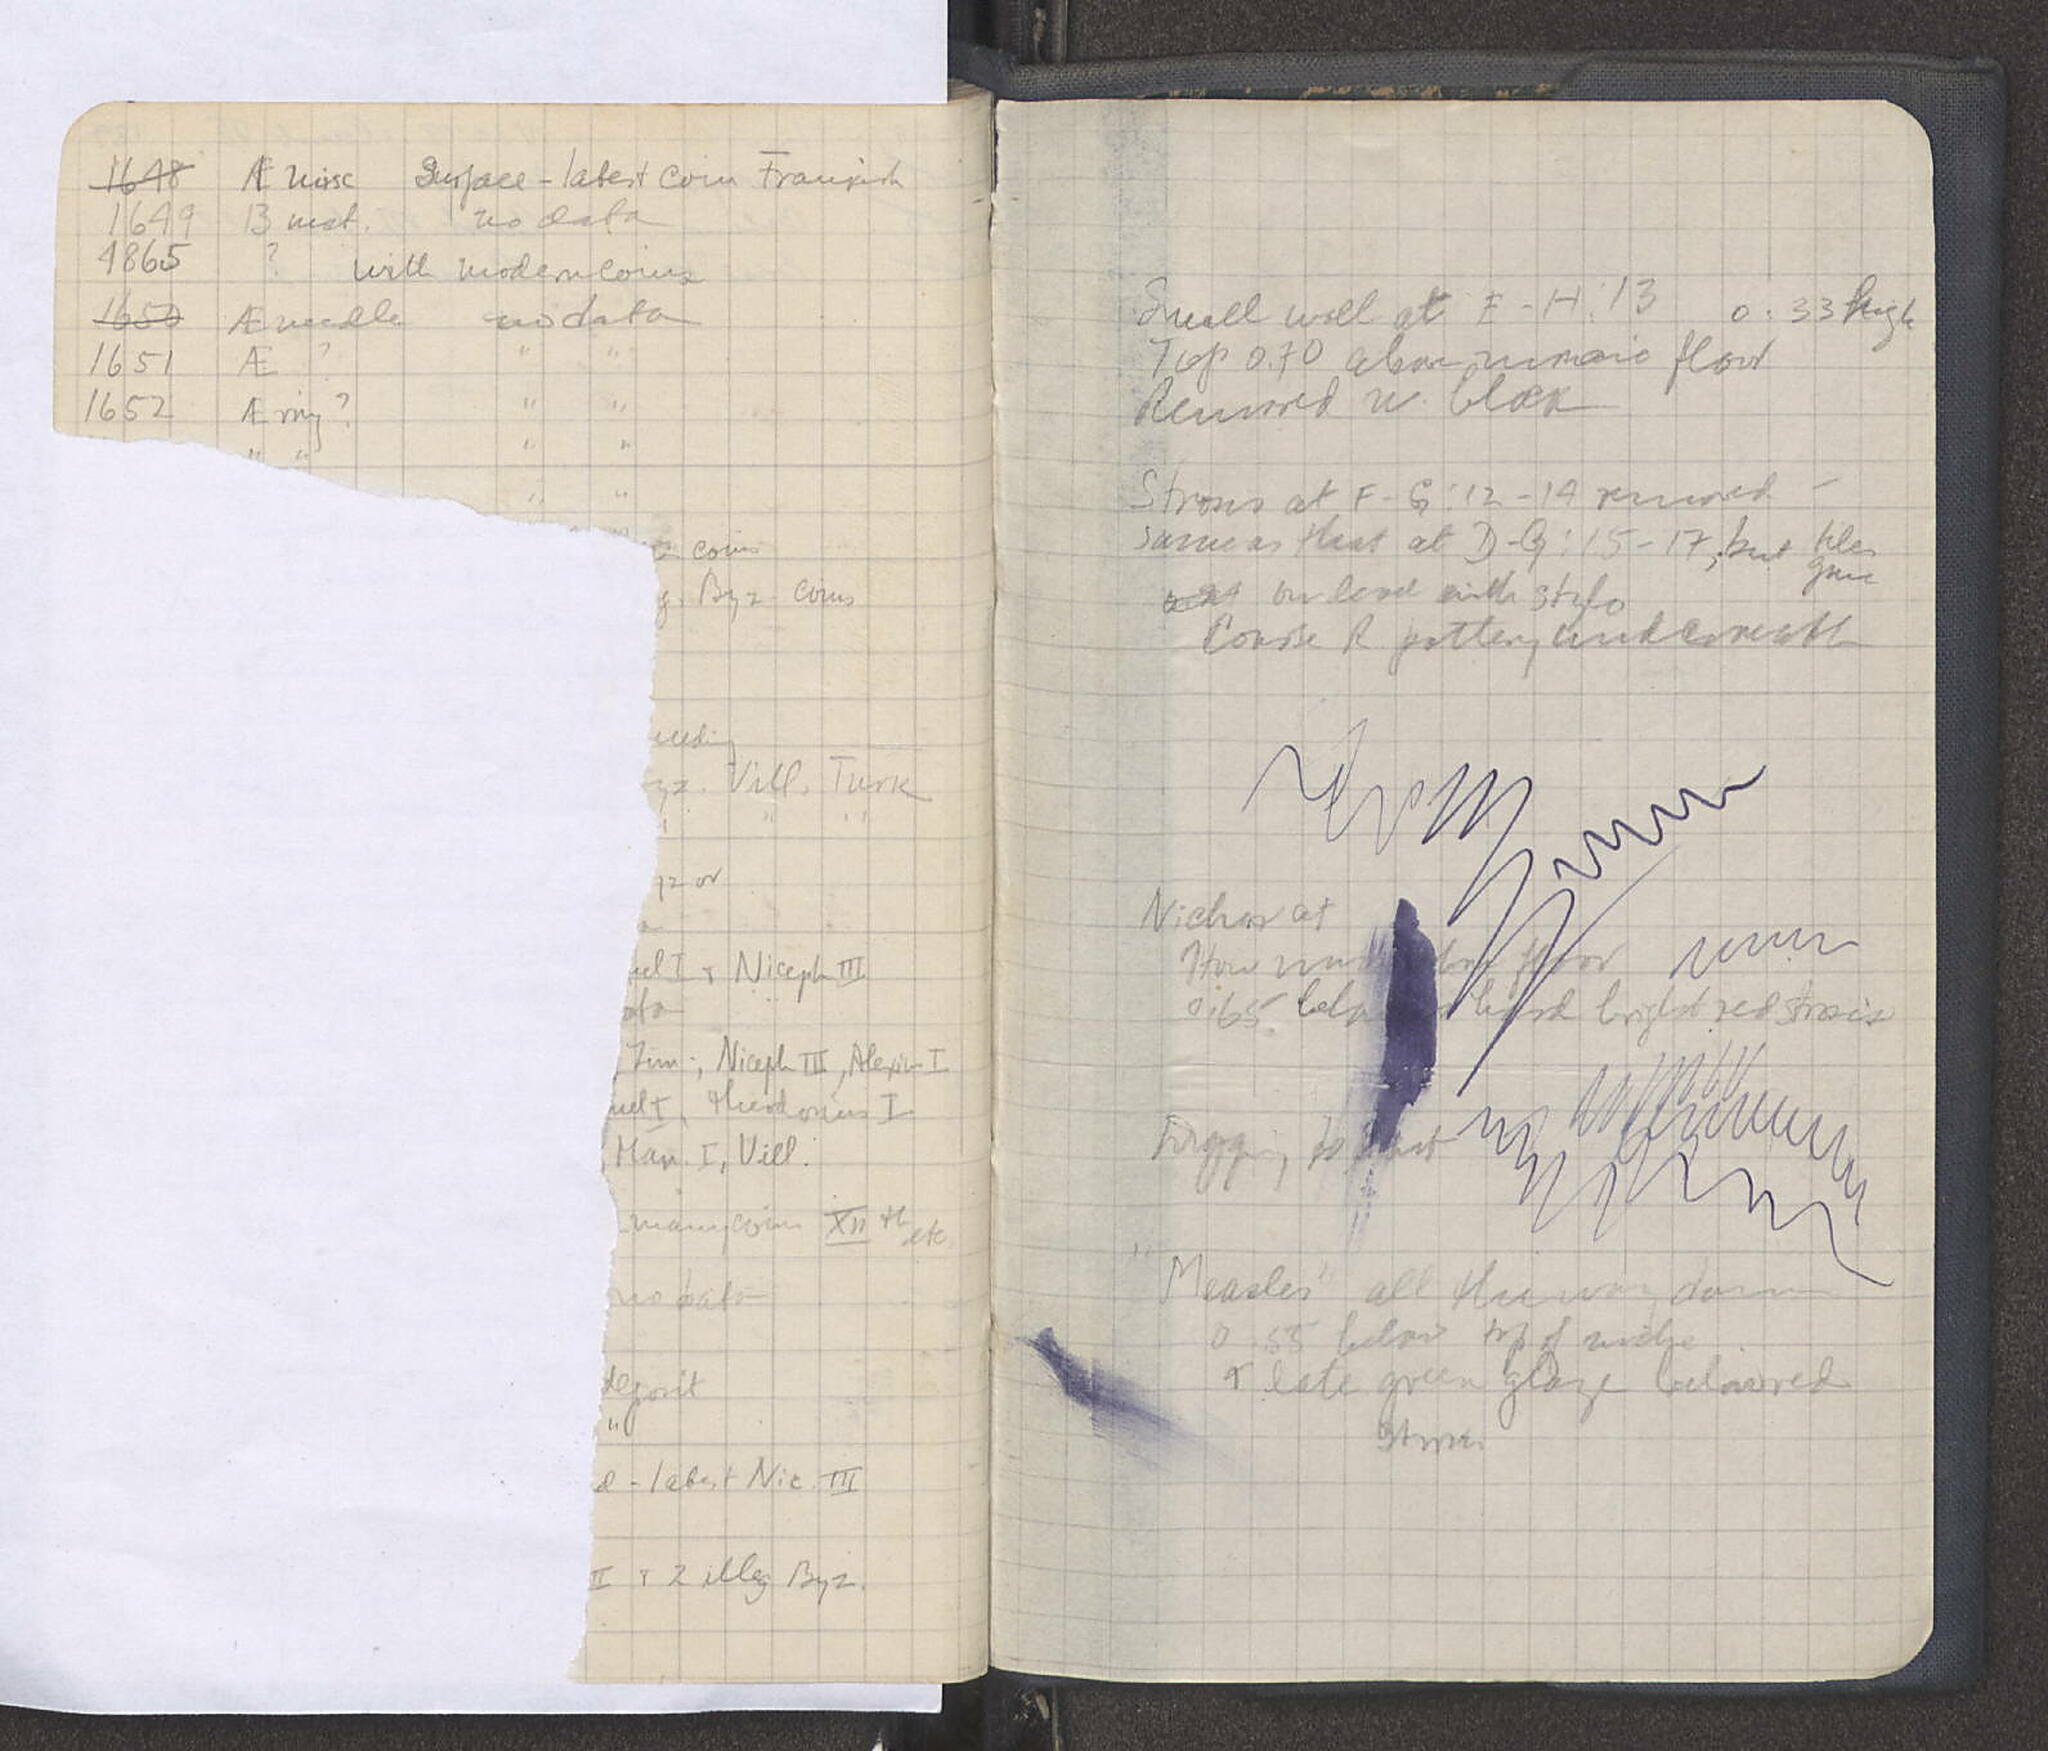 1648 Æ misc Surface - latest coin Frankish
1649 B mat. no data
4865 ? with modern coins
1650 Æ needle no data
1651 Æ ? " "
1652 Æ ring? " "
" " " "
" "
coins
g. Byz. coins
yz. Vill. Turk
" " "
yz or
uel I & Niceph III
ata
Zim-, Niceph III, Alexius I
uel I, Theodorus I
, Man. I, Vill.
many coins XII th etc
no data
deposit
"
d - latest Nic. III
II & 2 illeg Byz.
Small wall at E-H:13 0.33 high
Top 0.70 above mosaic floor
Removed w. black
Strosis at F-G:12-14 removed -
same as that at D-G:15-17, but tiles
gone
on level with stylo
Coarse R pottery underneath
Niches at
How much floor
0.65 below hard bright red strosis
Digging to
" Measles" all the way down
0.55 below top of niche
& late green glaze below red
strosis